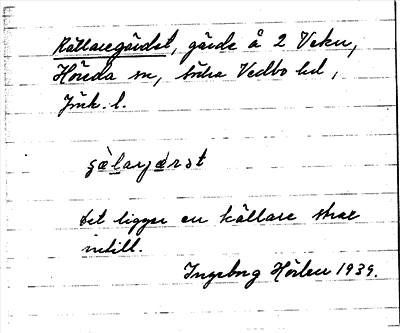 Källaregärdet, gärde å 2 Veku,
Höreda sn, Södra Vedbo hd,
Jönk. l.
Det ligger en källare strax
intill.
Ingeborg Hörlen 1939.